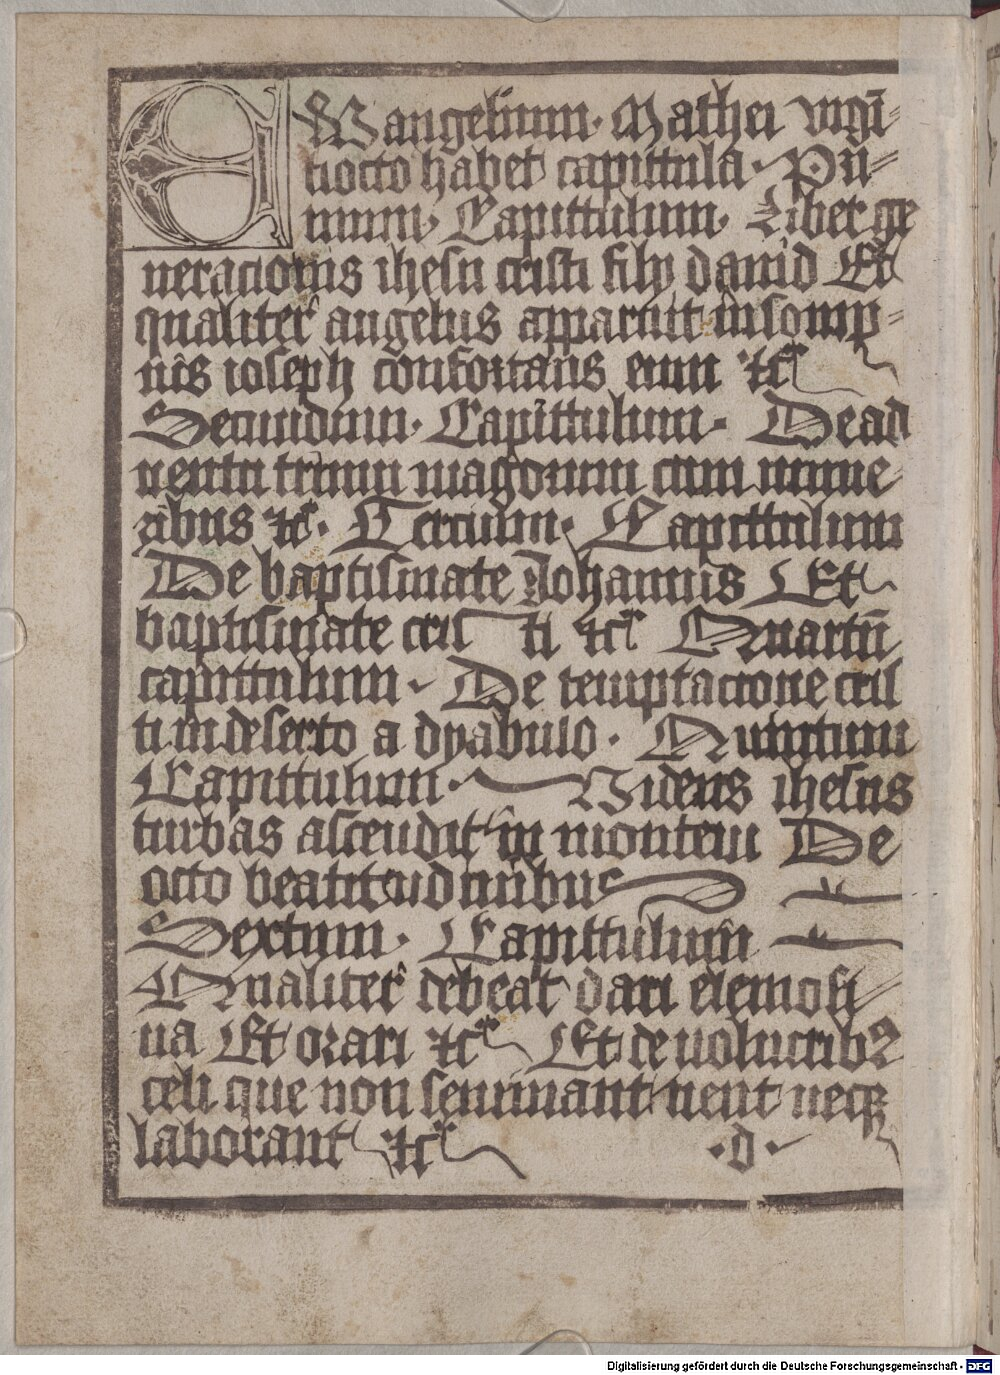 EWangelium· Mathei vigī-
tiocto habet capittula· Pri-
mum· Capittulum· Liber ge
neracionis ihesu cristi filÿ dauid Et
qualiter angelus apparuit in somp-
nis ioseph confortans eum ⁊cͣ
Secundum· Capittulum· De ad
uentu trium magorum cum mune
ribus ⁊cͣ· Tercium· Capittulum
De baptismate Johannis Et
baptismate cris ti ⁊cͣ Quartū
capittulum· De temptacione cris
ti in deserto a dyabulo· Quintum
Capittulum· Videns ihesus
turbas ascendit in montem De
octo beatitudinibus
Sextum· Capittulum
Qualiter debeat dari elemosi
na Et orari ⁊cͣ Et de uolucribꝫ
celi que non seminant nent necꝫ
laborant ⁊cͣ ·d·
Digitalisierung gefördert durch die Deutsche Forschungsgemeinschaft - DFG